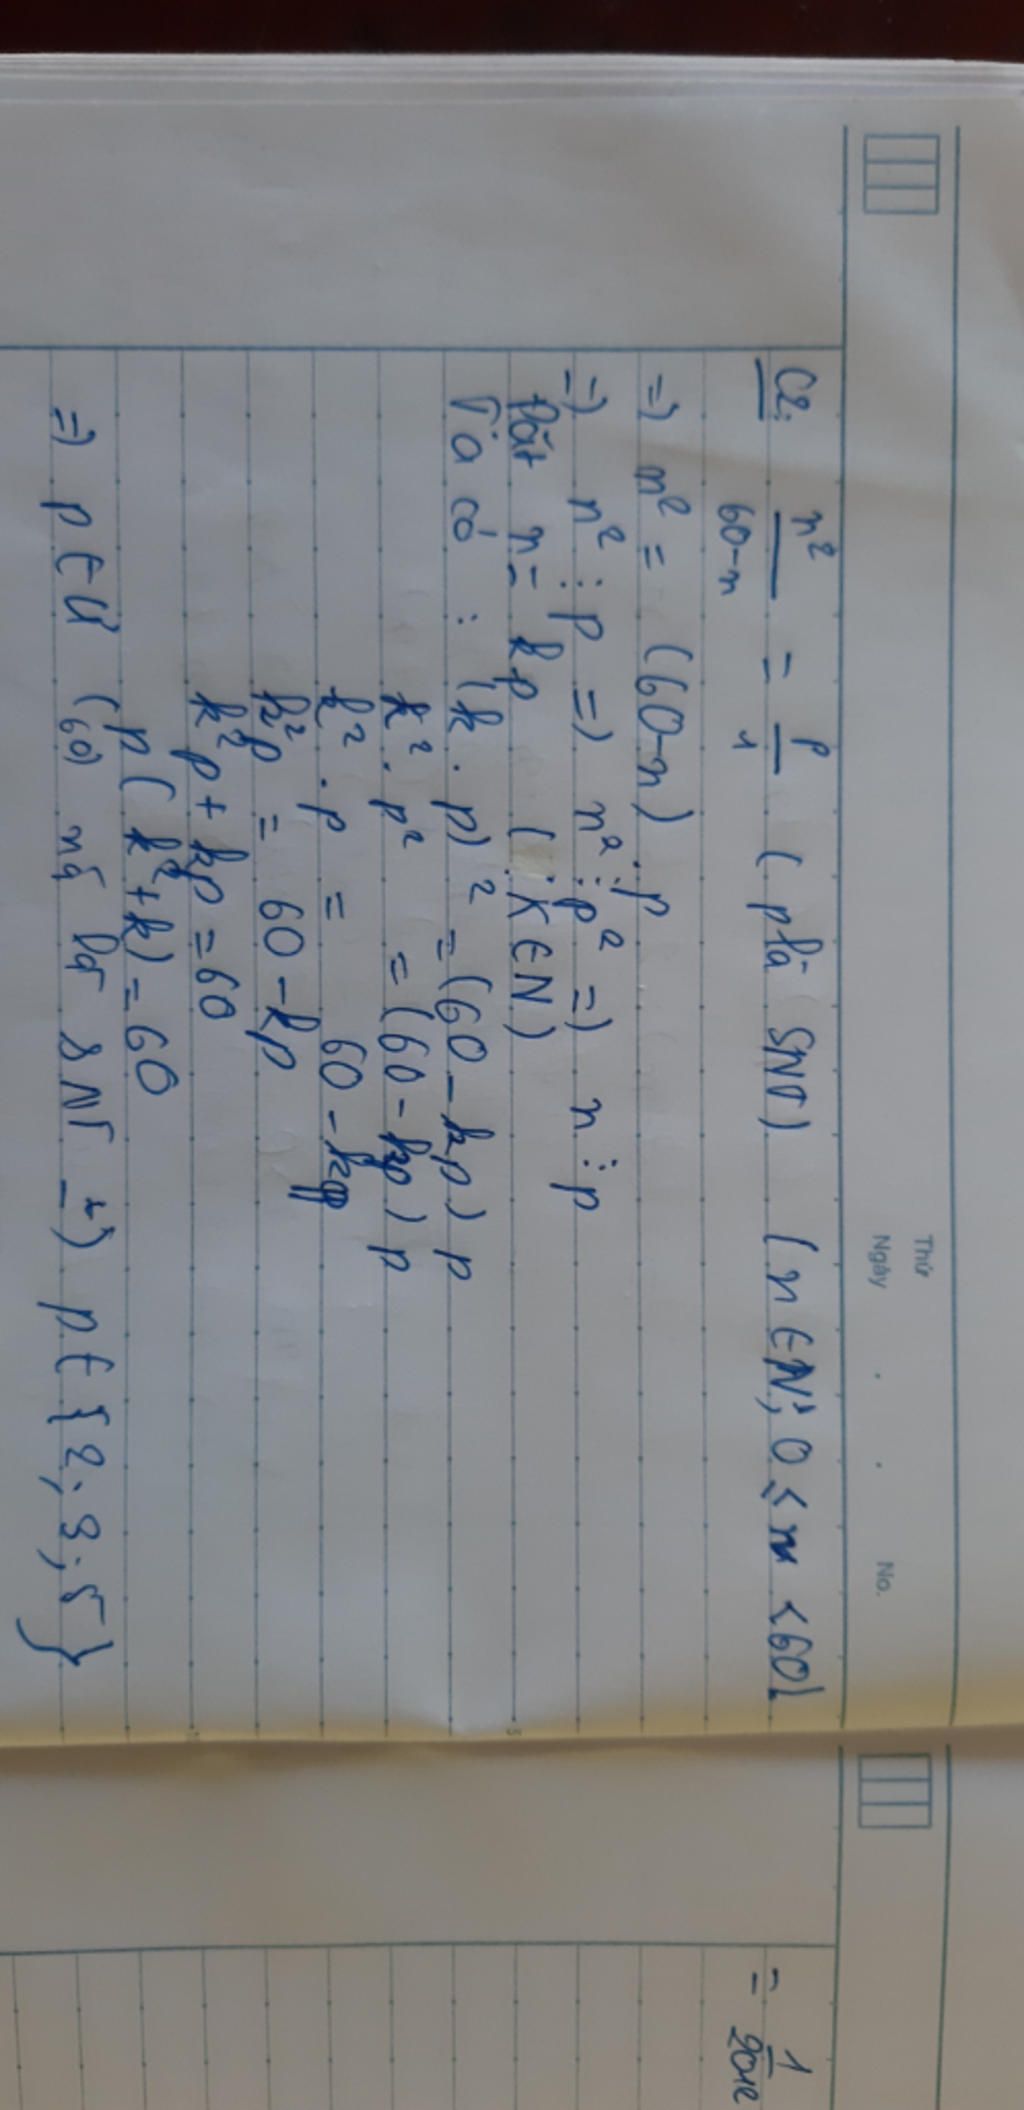 Thứ
Ngày . . No.
C2: n²/60-n = p/1 ( p là SNT) (n ∈ N; 0 ≤ n < 60)
=) n² = (60-n).p
=) n² ⋮ p =) n² ⋮ p² =) n ⋮ p
Đặt n = kp ( K ∈ N)
Ta có : (k . p)² = (60 - kp) p
k² . p² = (60 - kp) p
k² . p = 60 - kp
k²p = 60 - kp
k²p + kp = 60
p ( k² + k) = 60
=) p ∈ Ư (60) mà là SNT =) p ∈ {2; 3; 5}
= 1/